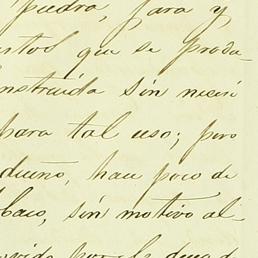 piedra, jara y
que se produ-
nstruida sin necesi
para tal uso; pero
dueño, hace poco de
baco, sin motivo al-